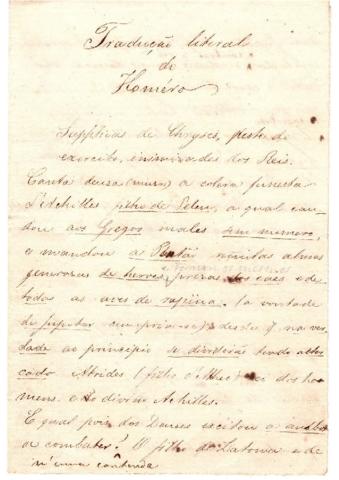 Traducção literal
de
Homéro
Supplicas de Chryses, peste do
exercito, inimizades dos Reis.
Canta deusa (musa) a colera funesta
d'Achilles filho de Peleu, a qual cau-
sou aos Gregos males sem numero,
e mandou a Plutão muitas almas
generosas de heroes, prezas dos cães e de
todas as aves de rapina. (a vontade
de Jupiter cumpria-se) desde q. na ver
dade ao principio se dividirão tendo alter
cado Atrides (filho d'Atreu) rei dos ho
mens e o divino Achilles.
E qual pois dos Deuses excitou a ambos
a combater? O filho de Latona e de
n'uma contenda